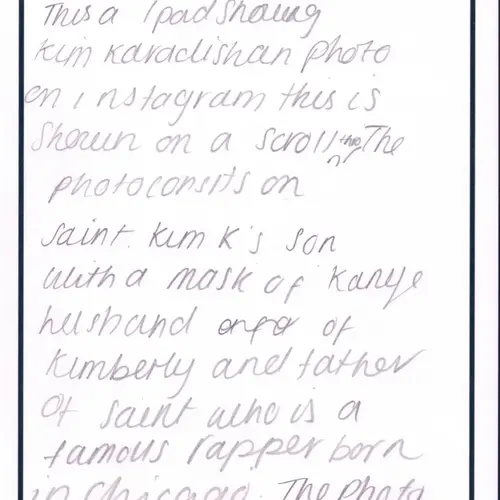 This a Ipad Showing
kim karadishan photo
on instagram this is
Shown on a scroll thro The
photo consits on
saint. kim k's son
with a mask of kanye
husband of
kimberly and father
of saint who is a
famous rapper born
in chicago. The photo